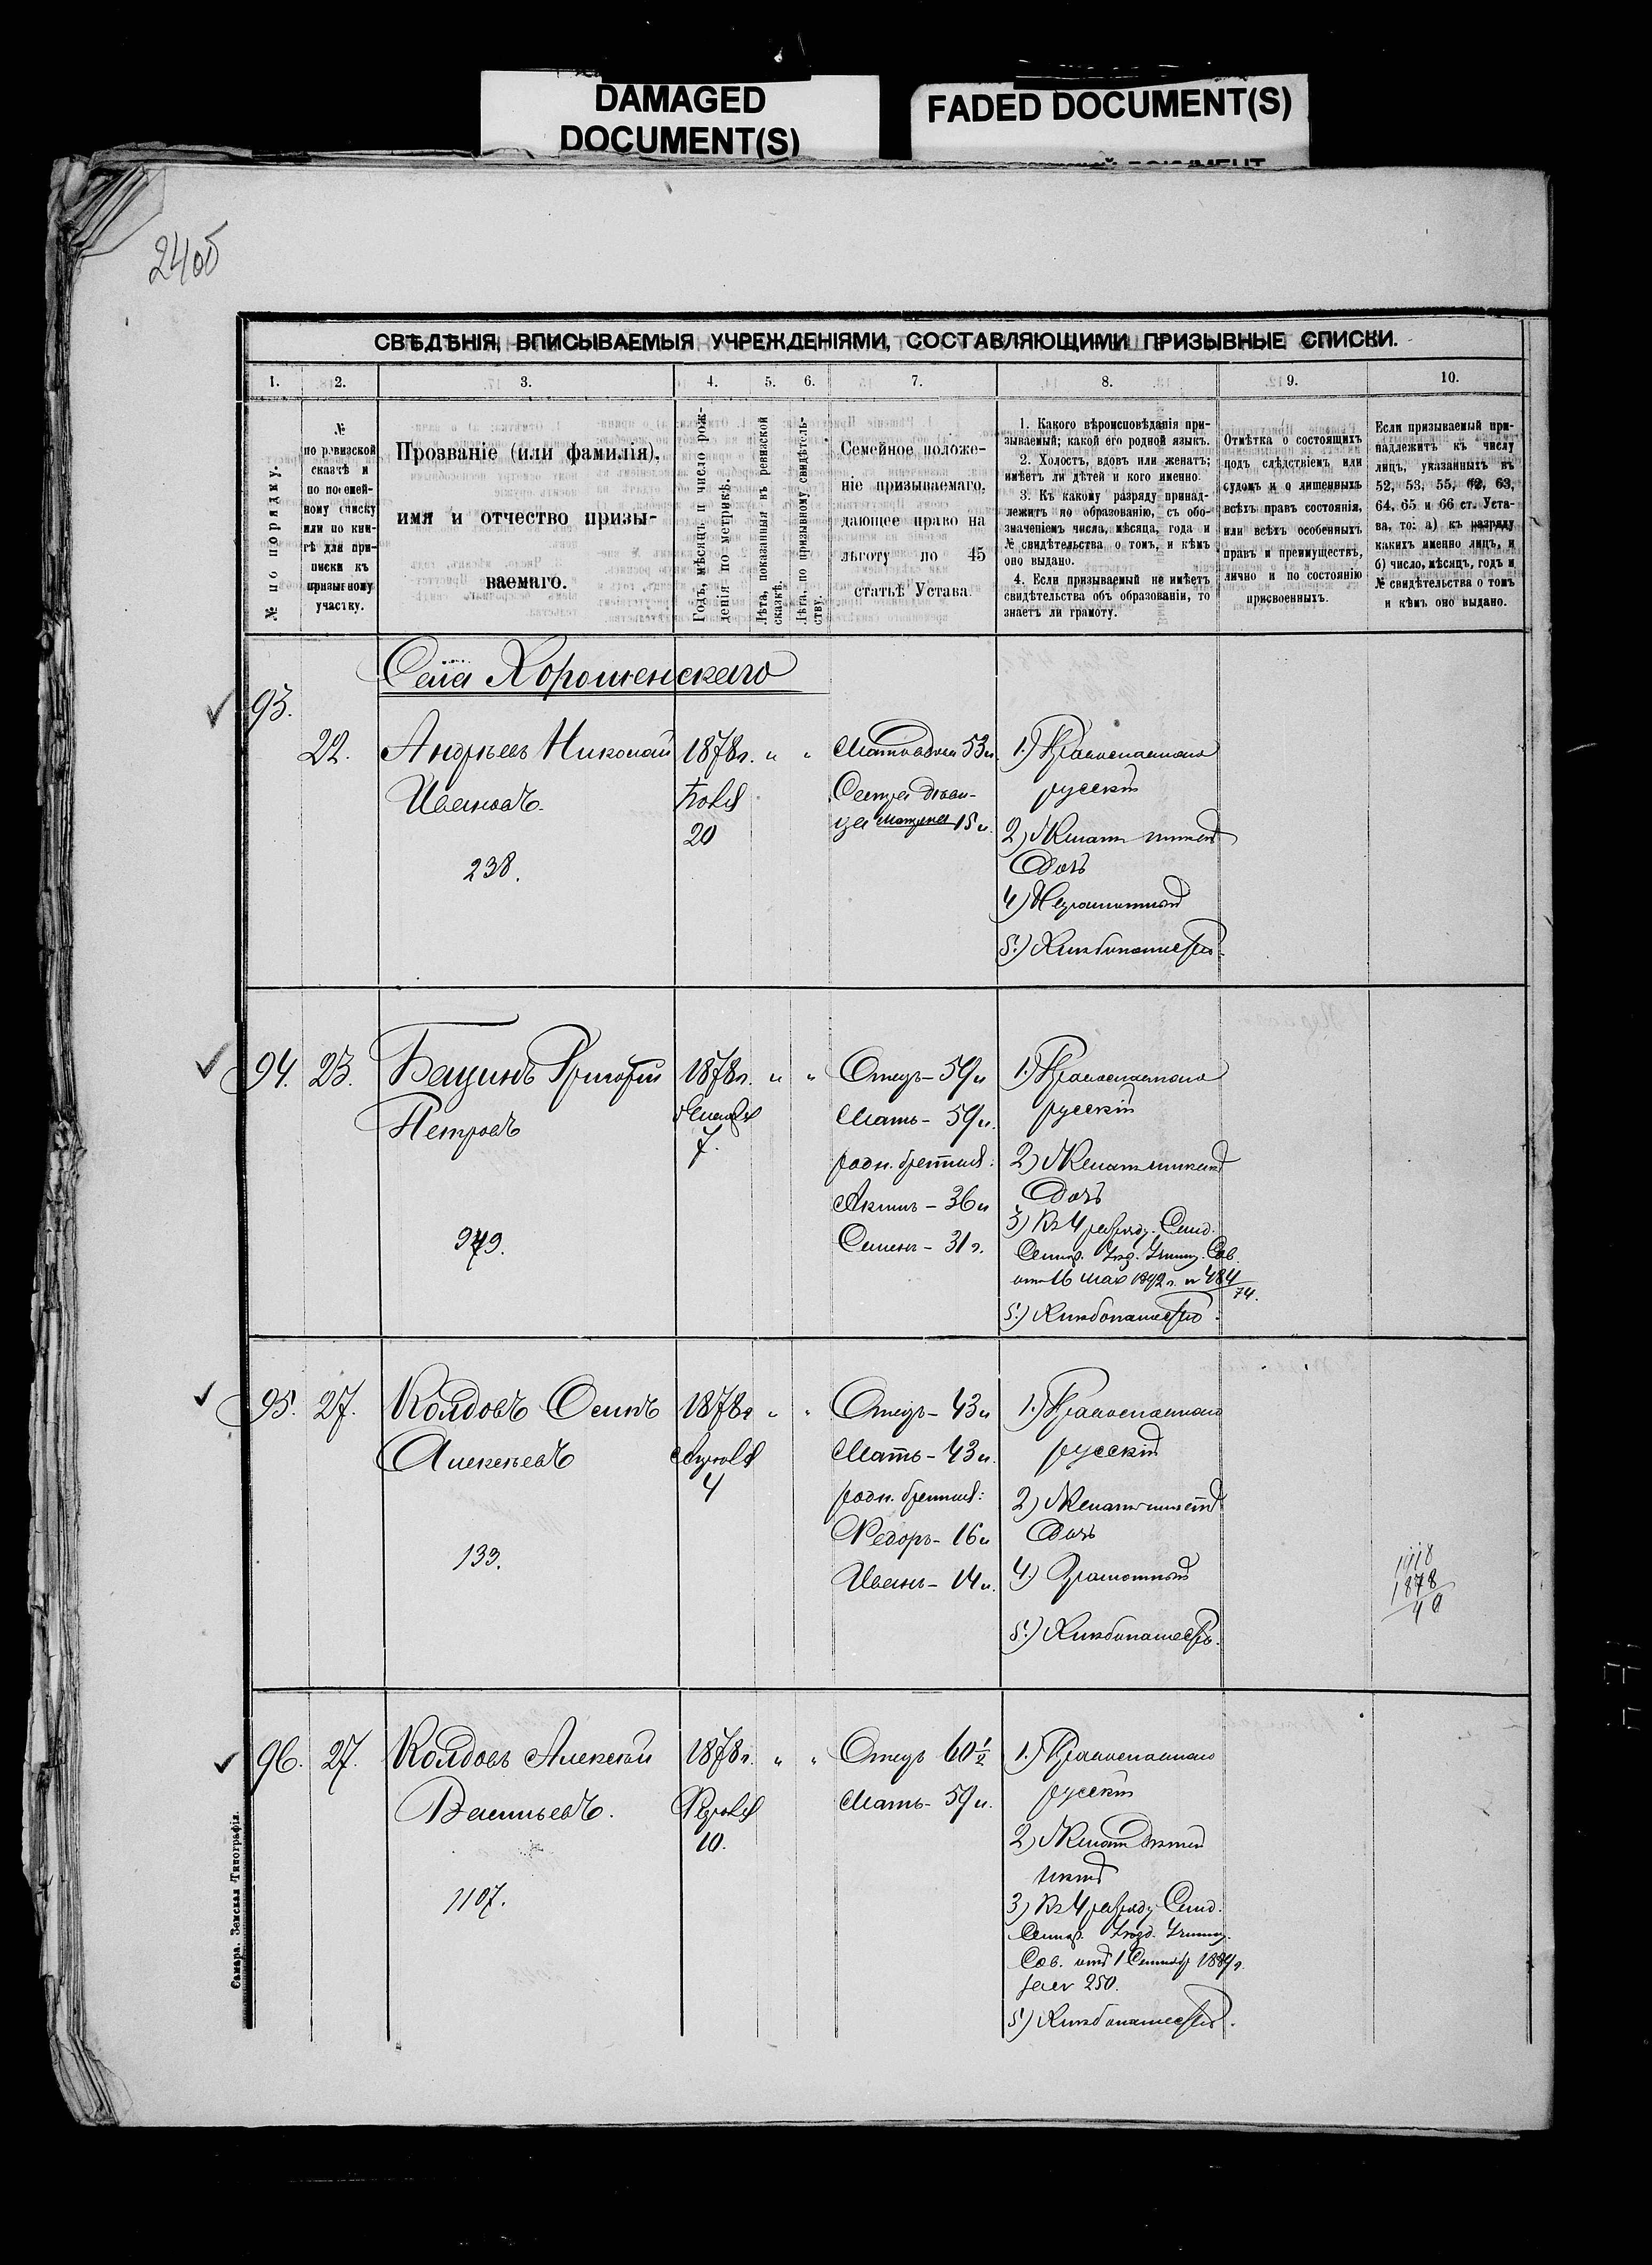 DAMAGED
DOCUMENT(S)
FADED DOCUMENT(S)
240б
СВѢДѢНІЯ, ВПИСЫВАЕМЫЯ УЧРЕЖДЕНІЯМИ, СОСТАВЛЯЮЩИМИ ПРИЗЫВНЫЕ СПИСКИ.
1. 2. 3. 4. 5. 6. 7. 8. 9. 10.
№ по порядку.
№
по ревизской
сказкѣ и
по посемей-
ному списку
или по кни-
гѣ для при-
писки къ
призывному
участку.
Прозваніе (или фамилія),
имя и отчество призы-
ваемаго.
Годъ, мѣсяцъ и число рож-
денія по метрикѣ.
Лѣта, показанныя въ ревизской
сказкѣ.
Лѣта, по призывному свидѣтель-
ству.
Семейное положе-
ніе призываемаго,
дающее право на
льготу по 45
статьѣ Устава.
1. Какого вѣроисповѣданія при-
зываемый; какой его родной языкъ.
2. Холостъ, вдовъ или женатъ;
имѣетъ ли дѣтей и кого именно.
3. Къ какому разряду принад-
лежитъ по образованію, съ обо-
значеніемъ числа, мѣсяца, года и
№ свидѣтельства о томъ, и кѣмъ
оно выдано.
4. Если призываемый не имѣетъ
свидѣтельства объ образованіи, то
знаетъ ли грамоту.
Отмѣтка о состоящихъ
подъ слѣдствіемъ или
судомъ и о лишенныхъ
всѣхъ правъ состоянія,
или всѣхъ особенныхъ
правъ и преимуществъ,
лично и по состоянію
присвоенныхъ.
Если призываемый при-
надлежитъ къ числу
лицъ, указанныхъ въ
52, 53, 55, 62, 63,
64, 65 и 66 ст. Уста-
ва, то: а) къ разряду
какихъ именно лицъ, и
б) число, мѣсяцъ, годъ и
№ свидѣтельства о томъ
и кѣмъ оно выдано.
Села Хорошенскаго
93.
22.
Андреевъ Николай
Ивановъ.
238.
1878г. " "
Ноябр
20
Мать вдова 53л.
Сестра дѣви-
ца 15л.
1.) Православнаго
русскій
2) Женатъ имѣетъ
дочь
4) Неграмотный
5.) Хлѣбопашество.
94. 23.
Бацинъ Григорій
Петровъ
979.
1878г. " "
Января
7.
Отецъ - 59л
Мать - 59л.
родн. братья:
Акимъ - 36л
Семенъ - 31г.
1.) Православнаго
русскій
2) Женатъ имѣетъ
дочь
3) Къ 4 разряду. Свид.
Самар. Уѣзд. Учили. Сов.
отъ 16 мая 1892г. № 484
74.
5.) Хлѣбопашество.
95. 27.
Колдовъ Осипъ
Алексѣевъ
133.
1878г " "
4
Отецъ - 43л
Мать - 43л.
родн. братья:
Федоръ - 16л
Иванъ - 14л.
1.) Православнаго
русскій
2) Женатъ имѣетъ
дочь
4.) Грамотный
5.) Хлѣбопашество.
1918
1878
40
96. 27.
Колдовъ Алексѣй
Васильевъ.
1107.
1878г. " "
10.
Отецъ 60½
Мать - 59л.
1.) Православнаго
русскій
2) Женатъ дѣтей
нѣтъ
3) Къ 4 разряду Свид.
Самар. Уѣзд. Учили.
Сов. отъ 1 Сентяб 1889г.
за № 250.
5) Хлѣбопашество.
Самара. Земская Типографія.